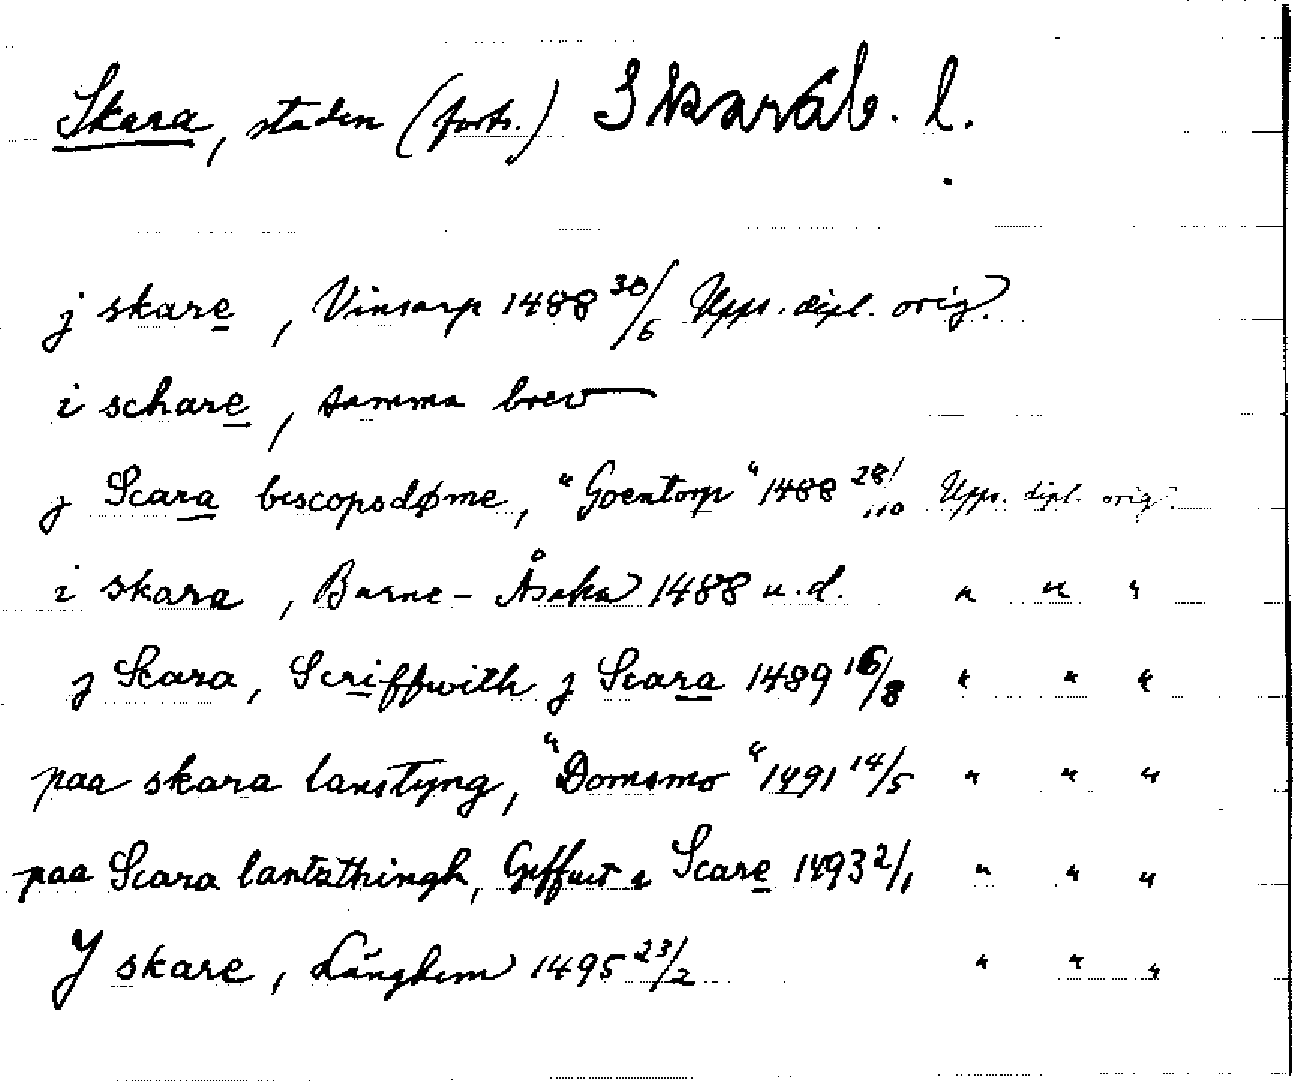 Skara, staden (forts.) Skarab. l.
j skare, Vinsarp 1488 30/6 Upps. dipl. orig.
i schare, samma brev
j Scara bescopsdøme, "Goentorp" 1488 28/10 Upps. dipl. orig.
i skara, Barne-Åsaka 1488 u.d. " " "
j Scara, Scriffwith j Scara 1489 16/8 " " "
paa skara lanstyng, "Domsmo" 1491 14/5 " " "
paa Scara lantzthingh, Geffuet i Scare 1493 2/1 " " "
J skare, Långhem 1495 23/2 " " "